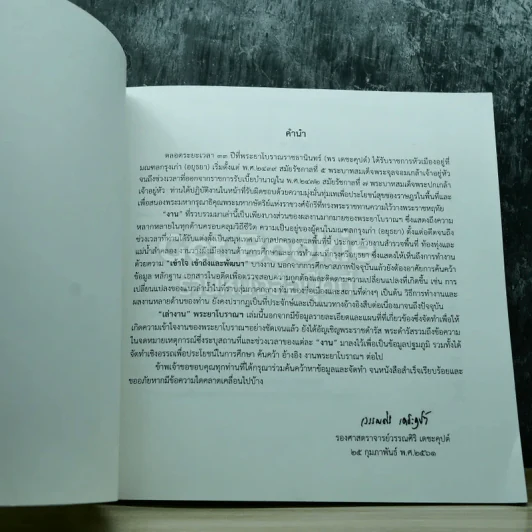 คำนำ
ตลอดระยะเวลา ๓๓ ปีที่พระยาโบราณราชธานินทร์ (พร เดชะคุปต์) ได้รับราชการหัวเมืองอยู่ที่
มณฑลกรุงเก่า (อยุธยา) เริ่มตั้งแต่ พ.ศ.๒๔๓๙ สมัยรัชกาลที่ ๕ พระบาทสมเด็จพระจุลจอมเกล้าเจ้าอยู่หัว
จนถึงช่วงเวลาที่ออกจากราชการรับเบี้ยบำนาญใน พ.ศ.๒๔๗๒ สมัยรัชกาลที่ ๗ พระบาทสมเด็จพระปกเกล้า
เจ้าอยู่หัว ท่านได้ปฏิบัติงานในหน้าที่รับผิดชอบด้วยความมุ่งมั่นทุ่มเทเพื่อประโยชน์สุขของราษฎรในพื้นที่และ
เพื่อสนองพระมหากรุณาธิคุณพระมหากษัตริย์แห่งราชวงศ์จักรีที่ทรงพระราชทานความไว้วางพระราชหฤทัย
"งาน" ที่รวบรวมมาเล่านี้เป็นเพียงบางส่วนของผลงานมากมายของพระยาโบราณฯ ซึ่งแสดงถึงความ
หลากหลายในทุกด้านครอบคลุมวิถีชีวิต ความเป็นอยู่ของผู้คนในมณฑลกรุงเก่า (อยุธยา) ตั้งแต่อดีตจนถึง
ช่วงเวลาที่ท่านได้รับแต่งตั้งเป็นสมุหเทศาภิบาลปกครองดูแลพื้นที่นี้ ประกอบด้วยงานสำรวจพื้นที่ ท้องทุ่งและ
แม่น้ำลำคลอง อยุธยา) แสดงให้เห็นถึงการทำงาน
ด้วยความ "เข้าใจ เข้าถึงและพัฒนา" นอกจากการศึกษาสภาพปัจจุบันแล้วยังต้องอาศัยการค้นคว้า
ข้อมูล หลักฐาน เอกสารในอดีตเพื่อตรวจสอบความถูกต้องและติดตามความเปลี่ยนแปลงที่เกิดขึ้น เช่น การ
เปลี่ยนแปลงของแนวลำน้ำในที่ลุ่มภาคกลาง ที่มาของชื่อเมืองและสถานที่ต่างๆ เป็นต้น วิธีการทำงานและ
ผลงานหลายด้านของท่าน ยังคงปรากฏเป็นที่ประจักษ์และเป็นแนวทางอ้างอิงสืบต่อเนื่องมาจนถึงปัจจุบัน
"เล่างาน" พระยาโบราณฯ เล่มนี้นอกจากมีข้อมูลรายละเอียดและแผนที่ที่เกี่ยวข้องซึ่งจัดทำเพื่อให้
เกิดความเข้าใจงานของพระยาโบราณฯอย่างชัดเจนแล้ว ยังได้อัญเชิญพระราชดำรัส พระดำรัสรวมถึงข้อความ
ในจดหมายเหตุการณ์ซึ่งระบุสถานที่และช่วงเวลาของแต่ละ "งาน" มาลงไว้เพื่อเป็นข้อมูลปฐมภูมิ รวมทั้งได้
จัดทำเชิงอรรถเพื่อประโยชน์ในการศึกษา ค้นคว้า อ้างอิง งานพระยาโบราณฯ ต่อไป
ข้าพเจ้าขอขอบคุณทุกท่านที่ได้กรุณาร่วมค้นคว้าหาข้อมูลและจัดทำ จนหนังสือสำเร็จเรียบร้อยและ
ขออภัยหากมีข้อความใดคลาดเคลื่อนไปบ้าง
วรรณศิริ เดชะคุปต์
รองศาสตราจารย์วรรณศิริ เดชะคุปต์
๒๕ กุมภาพันธ์ พ.ศ.๒๕๖๑